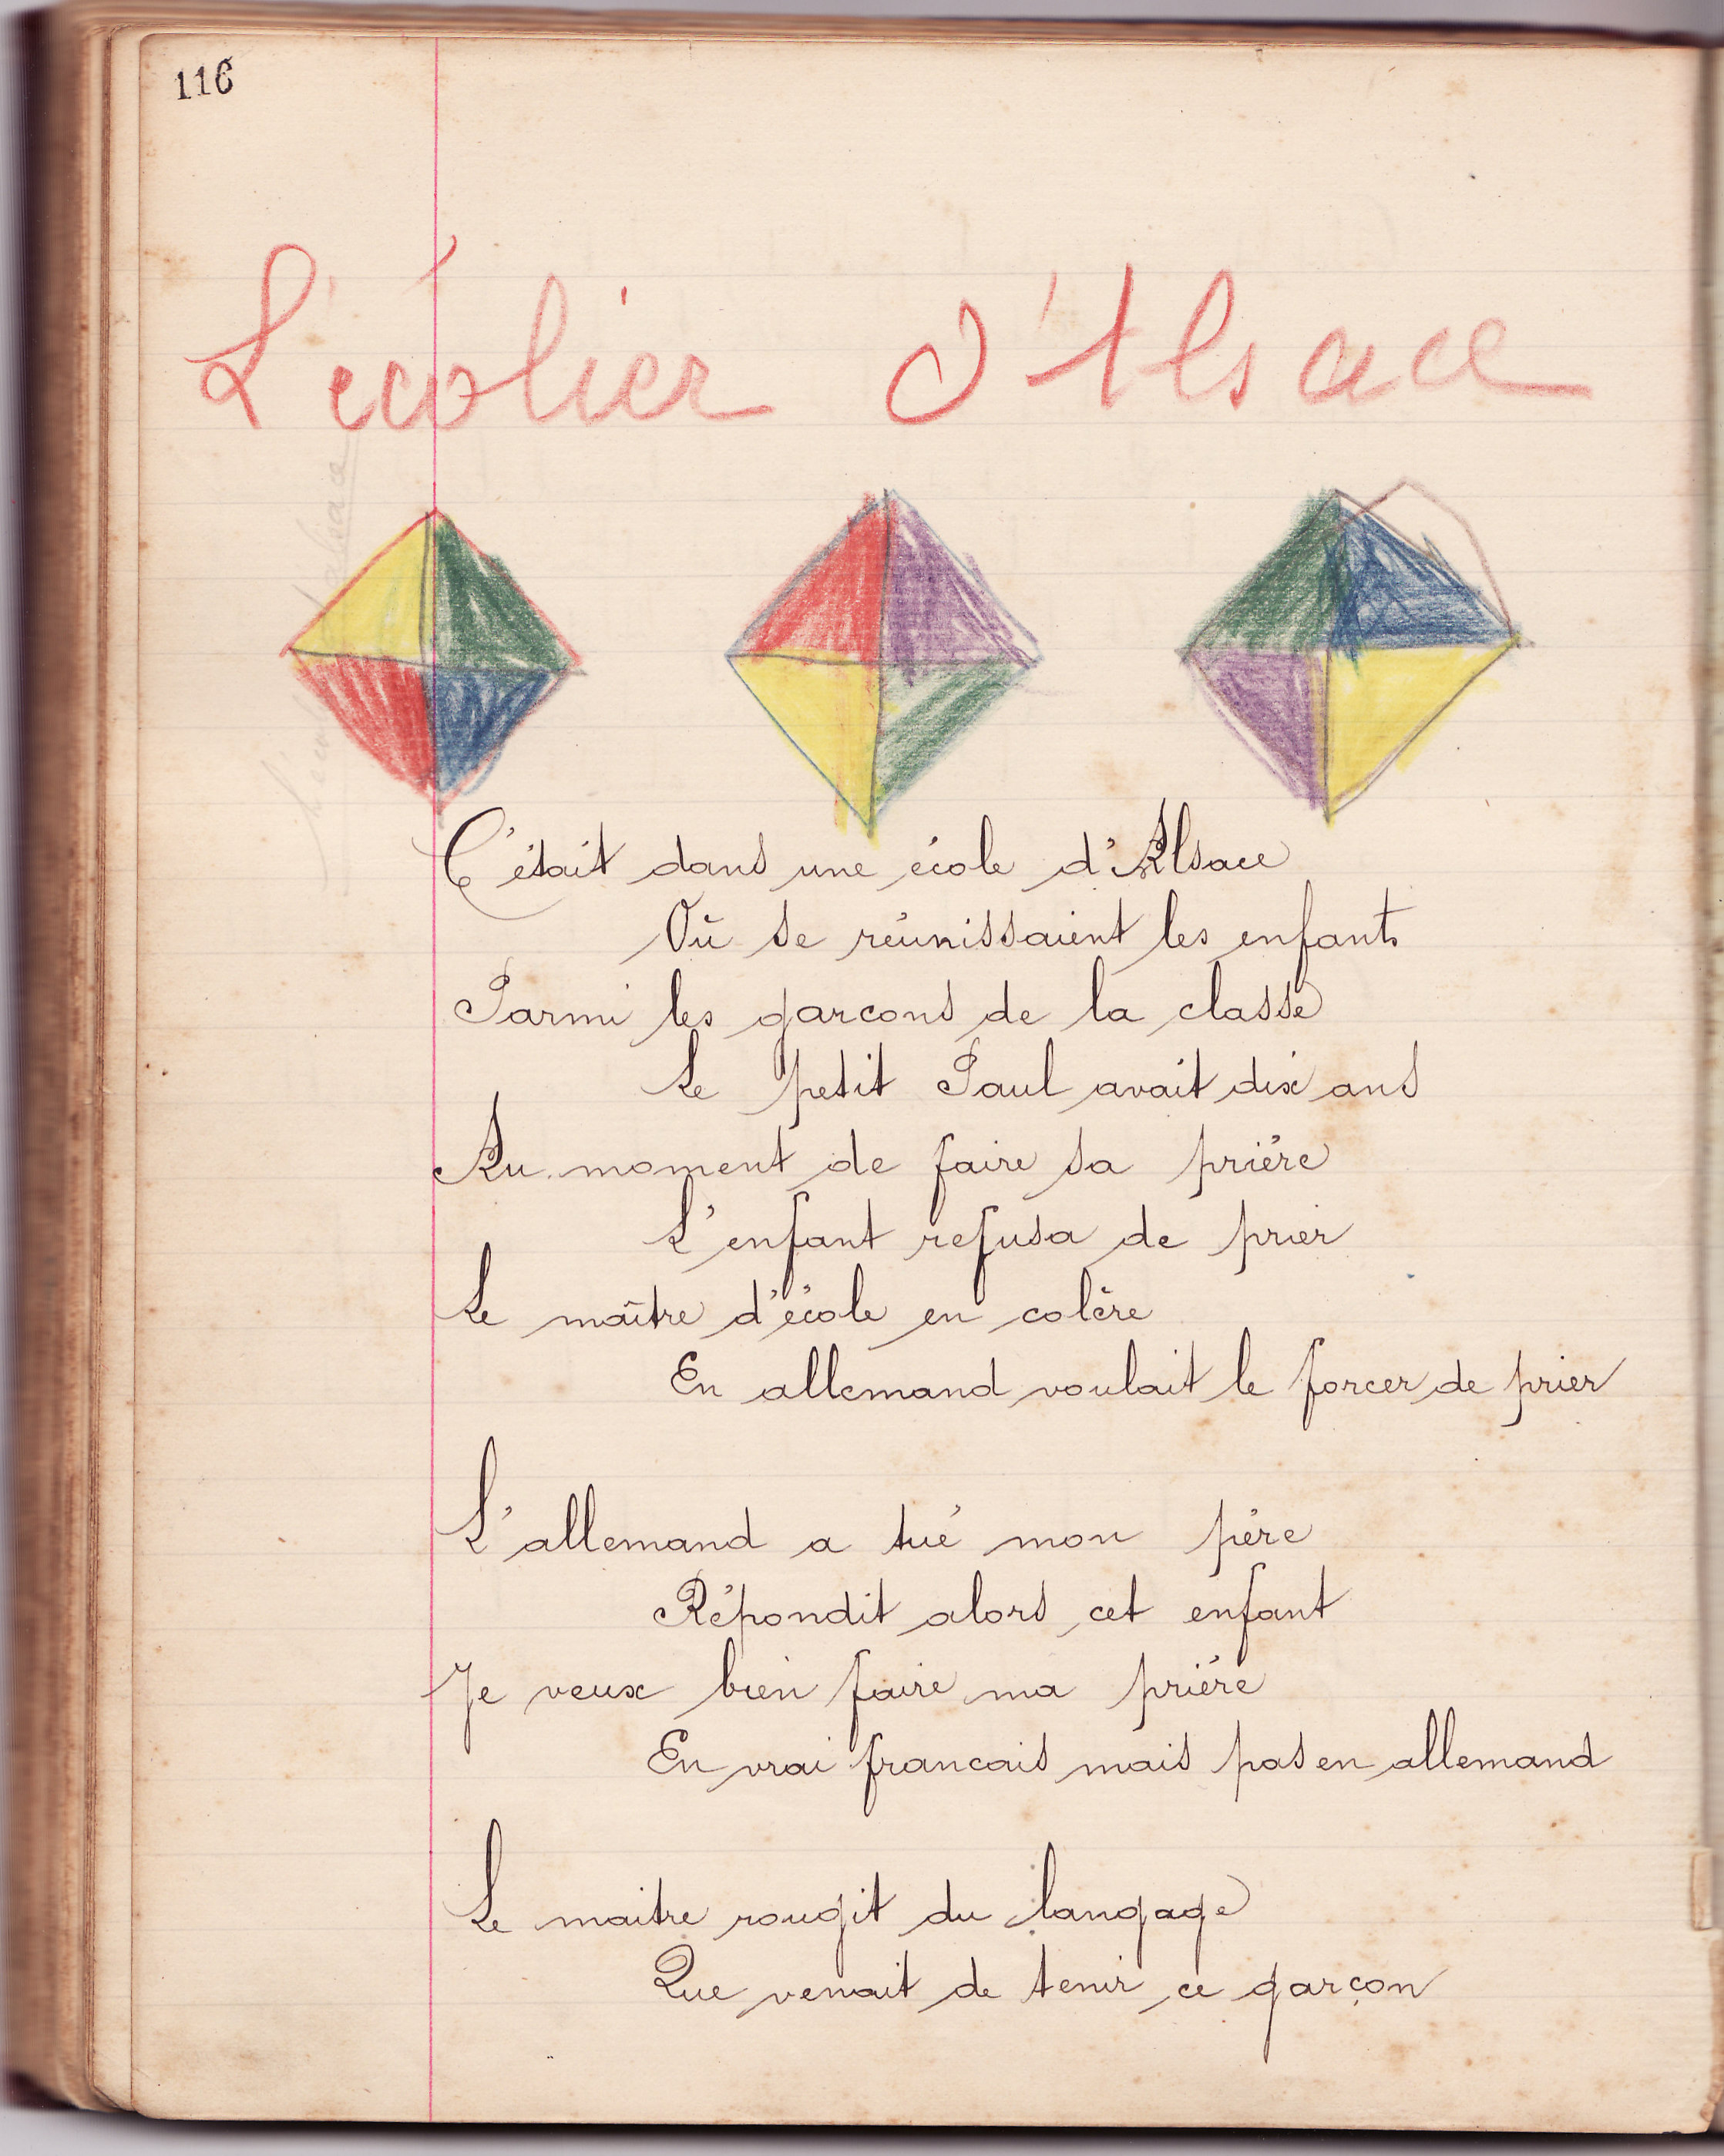 116
L'écolier d'Alsace
C'était dans une école d'Alsace
Où se réunissaient les enfants
Parmi les garcons de la classe
Le petit Paul avait dix ans
Au moment de faire sa prière
L'enfant refusa de prier
Le maître d'école en colère
En allemand voulait le forcer de prier
L'allemand a tué mon père
Répondit alors cet enfant
Je veux bien faire ma prière
En vrai francais mais pas en allemand
Le maitre rougit du langage
Que venait de tenir ce garçon